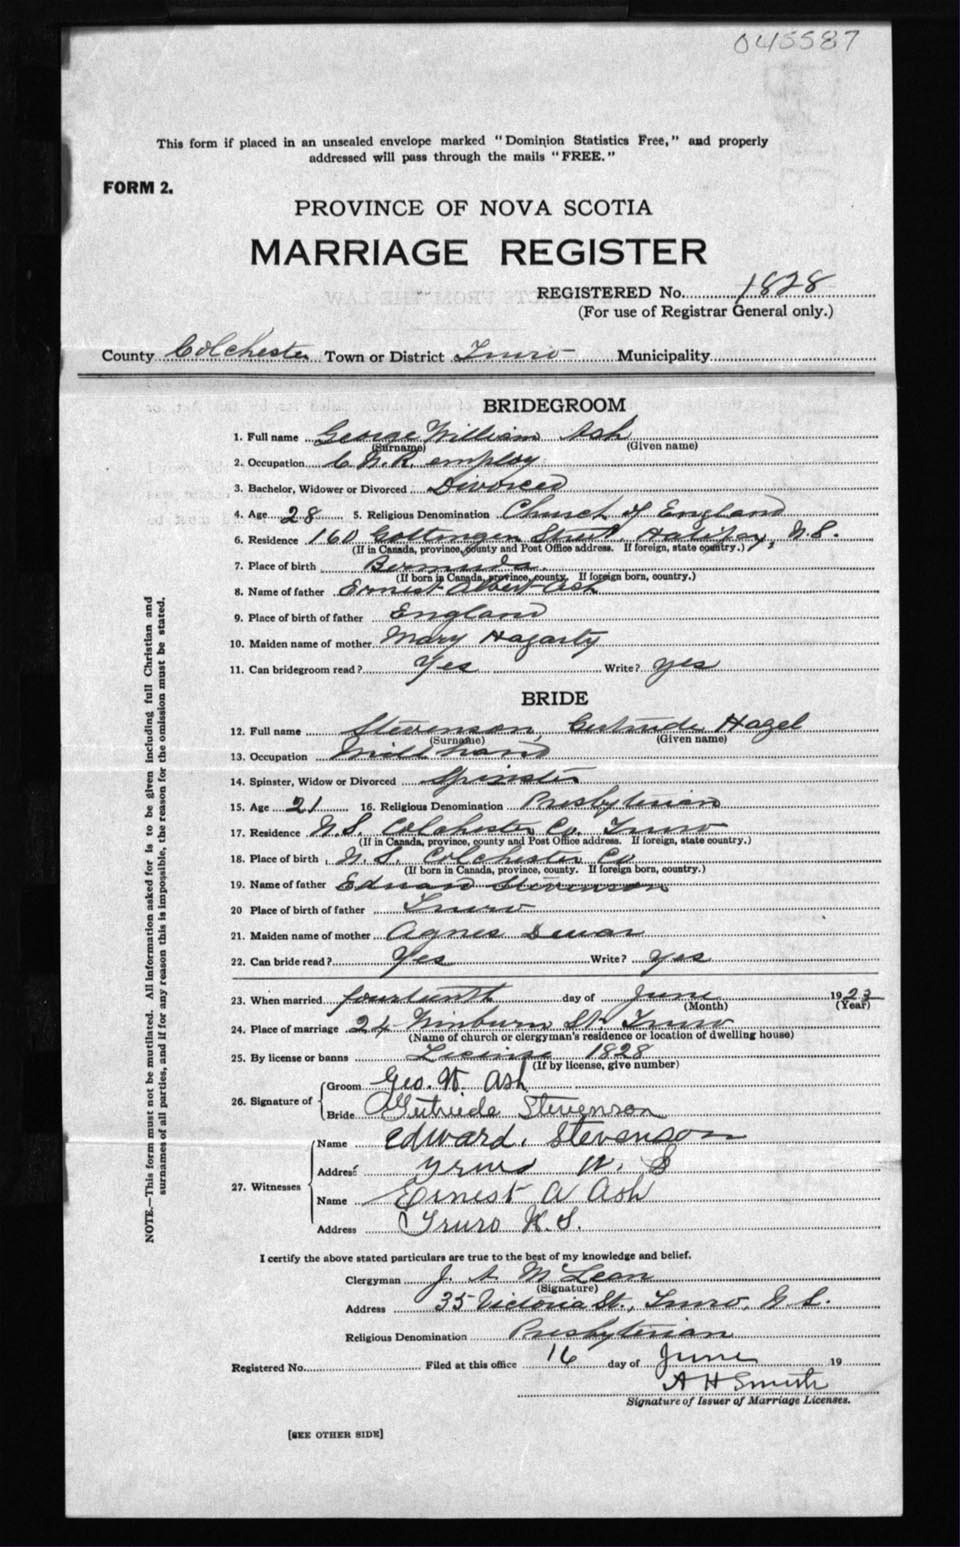 045587
This form if placed in an unsealed envelope marked "Dominion Statistics Free," and properly
addressed will pass through the mails "FREE."
FORM 2.
PROVINCE OF NOVA SCOTIA
MARRIAGE REGISTER
REGISTERED No. 1828
(For use of Registrar General only.)
County Colchester Town or District Truro Municipality
BRIDEGROOM
1. Full name George William Ash
(Surname) (Given name)
2. Occupation C.N.R. employ
3. Bachelor, Widower or Divorced Divorced
4. Age 28 5. Religious Denomination Church of England
6. Residence 160 Gottingen Street, Halifax, N.S.
(If in Canada, province, county and Post Office address. If foreign, state country.)
7. Place of birth Bermuda.
(If born in Canada, province, county. If foreign born, country.)
8. Name of father Ernest Albert Ash
9. Place of birth of father England
10. Maiden name of mother Mary Hagarty
11. Can bridegroom read? Yes Write? yes
BRIDE
12. Full name Stevenson, Gertrude Hazel
(Surname) (Given name)
13. Occupation Mill hand
14. Spinster, Widow or Divorced Spinster
15. Age 21 16. Religious Denomination Presbyterian
17. Residence N.S. Colchester Co. Truro
(If in Canada, province, county and Post Office address. If foreign, state country.)
18. Place of birth N.S. Colchester Co
(If born in Canada, province, county. If foreign born, country.)
19. Name of father Edward Stevenson
20 Place of birth of father Truro
21. Maiden name of mother Agnes Dewar
22. Can bride read? Yes Write? yes
23. When married fourteenth day of June 1923
(Month) (Year)
24. Place of marriage 24 St. Truro
(Name of church or clergyman's residence or location of dwelling house)
25. By license or banns License 1828
(If by license, give number)
26. Signature of Groom Geo. W. Ash
Bride Gertrude Stevenson
27. Witnesses Name Edward. Stevenson
Address Truro N. S
Name Ernest A Ash
Address Truro N.S.
I certify the above stated particulars are true to the best of my knowledge and belief.
Clergyman J. A McLean
(Signature)
Address 35 Victoria St., Truro, N.S.
Religious Denomination Presbyterian
Registered No. Filed at this office 16 day of June 19
A H Smith
Signature of Issuer of Marriage Licenses.
[SEE OTHER SIDE]
NOTE.—This form must not be mutilated. All information asked for is to be given including full Christian and
surnames of all parties, and if for any reason this is impossible, the reason for the omission must be stated.